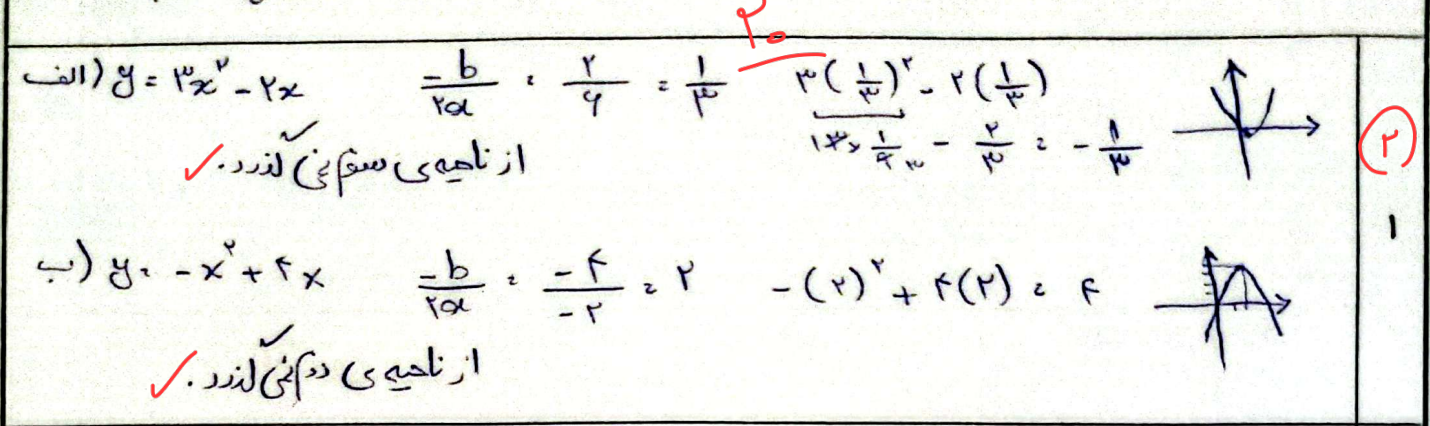 ۲۰
الف) y = ۳x^۲ - ۲x   -b/۲a = ۲/۶ = ۱/۳   ۳(۱/۳)^۲ - ۲(۱/۳)
۱/۳ - ۲/۳ = -۱/۳
از ناحیه‌ی سوم نمی‌گذرد. ✓
۲
۱
ب) y = -x^۲ + ۴x   -b/۲a = -۴/-۲ = ۲   -(۲)^۲ + ۴(۲) = ۴
از ناحیه‌ی دوم نمی‌گذرد. ✓